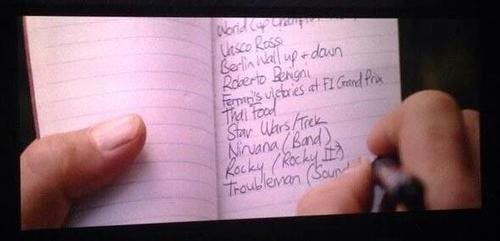 World Cup Champion
Vasco Rossi
Berlin Wall up + down
Roberto Benigni
Ferrari's victories at F1 Grand Prix
Thai Food
Star Wars/Trek
Nirvana (Band)
Rocky (Rocky II?)
Troubleman (Sound